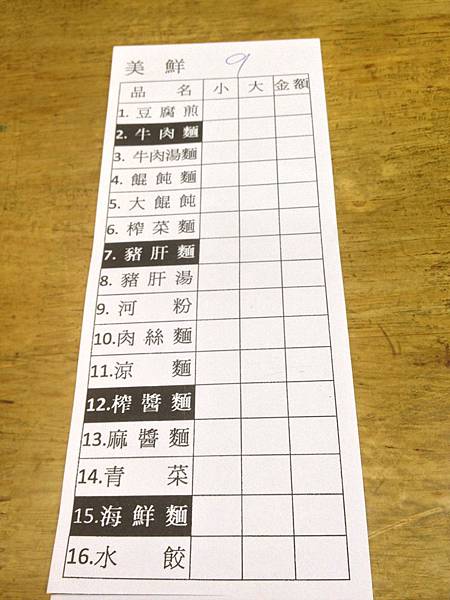 美鮮 9
品名 小 大 金額
1. 豆腐煎
2. 牛肉麵
3. 牛肉湯麵
4. 餛飩麵
5. 大餛飩
6. 榨菜麵
7. 豬肝麵
8. 豬肝湯
9. 河粉
10.肉絲麵
11.涼麵
12.榨醬麵
13.麻醬麵
14.青菜
15.海鮮麵
16.水餃